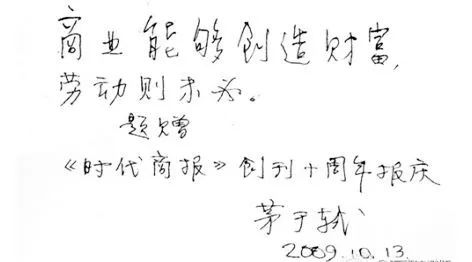 商业能够创造财富,
劳动则未必。
题赠
《时代商报》创刊十周年报庆
茅于轼
2009.10.13.